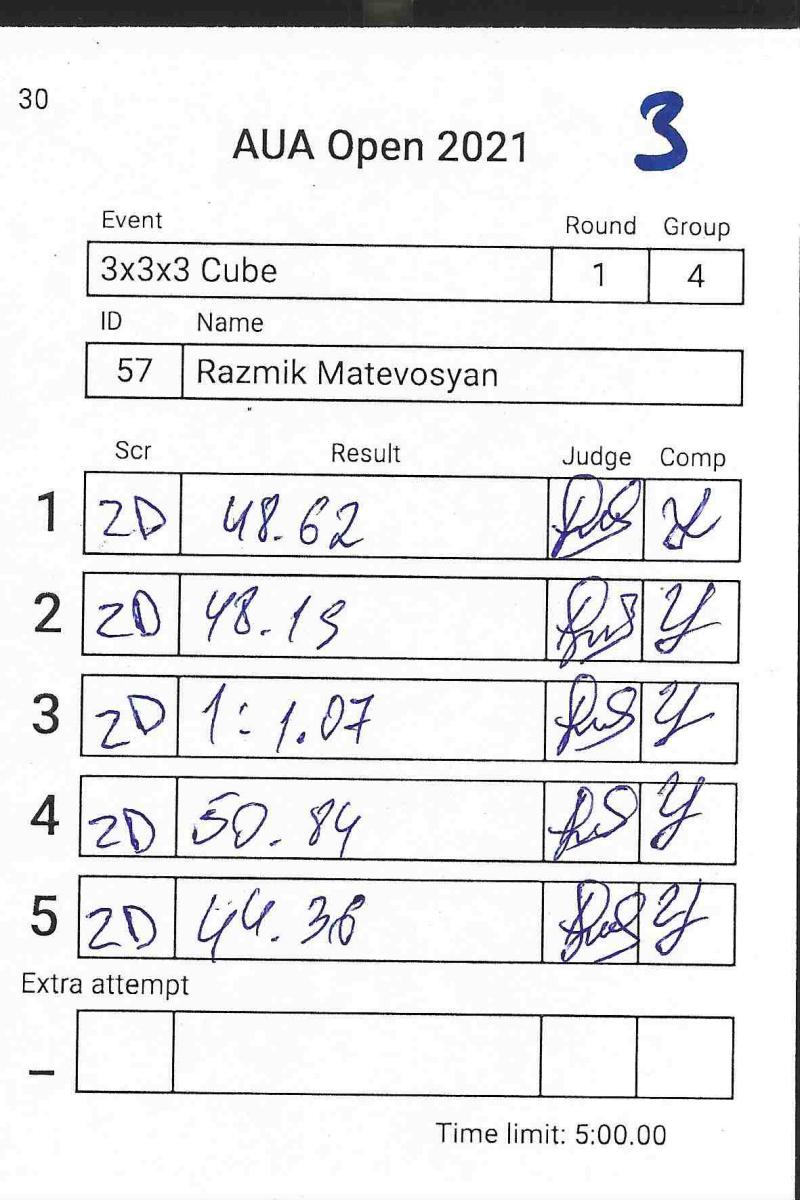 30
AUA Open 2021 3
Event Round Group
3x3x3 Cube 1 4
ID Name
57 Razmik Matevosyan
Scr Result Judge Comp
1 2D 48.62
2 2D 48.19
3 2D 1:1.07
4 2D 50.84
5 2D 44.36
Extra attempt
_
Time limit: 5:00.00